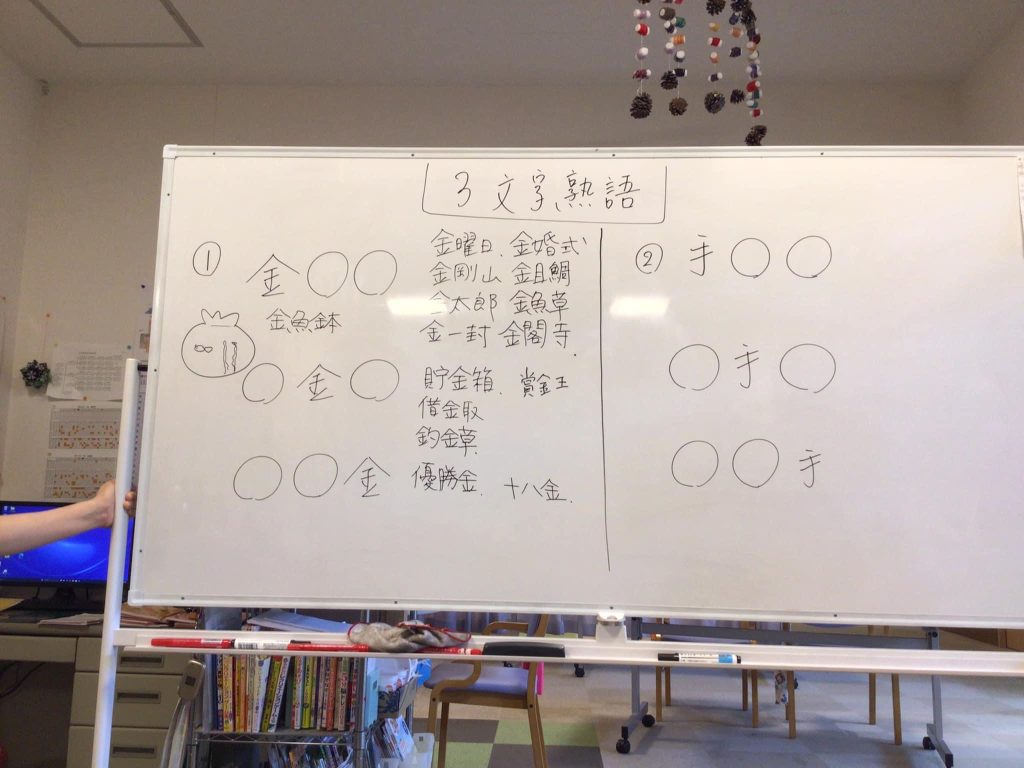 3文字熟語
① 金○○
金曜日、金婚式
金剛山 金目鯛
金太郎 金魚草
金一封 金閣寺
金魚鉢
○金○
貯金箱、賞金王
借金取
釣金草
○○金
優勝金、十八金
② 手○○
○手○
○○手